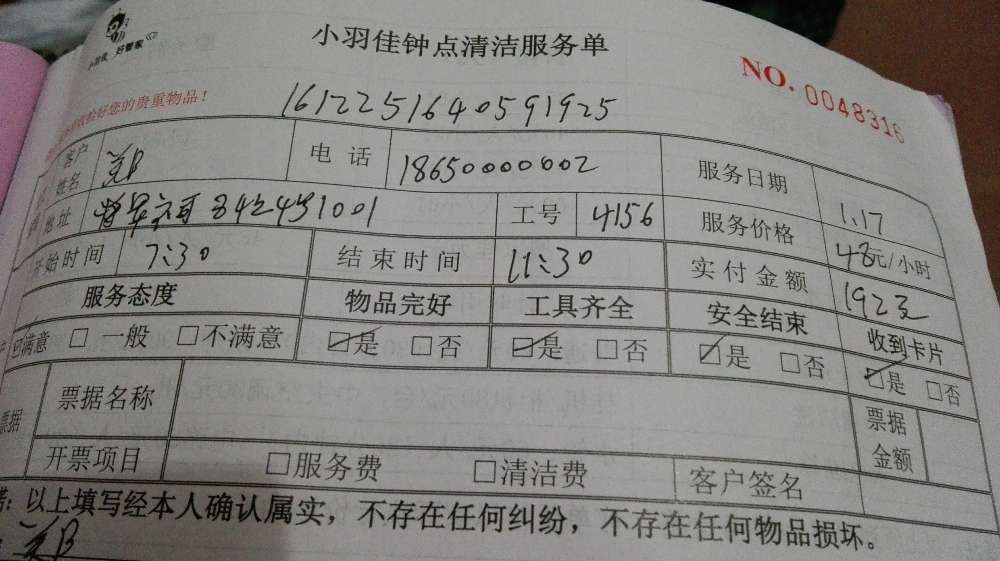 小羽佳 好管家
小羽佳钟点清洁服务单
NO. 0048316
收检好您的贵重物品！
1612251640591925
客户姓名 电话 18650000002 服务日期 1.17
地址 842451001 工号 4156 服务价格 48元/小时
开始时间 7:30 结束时间 11:30 实付金额 192元
服务态度 物品完好 工具齐全 安全结束 收到卡片
☑满意 □一般 □不满意 ☑是 □否 ☑是 □否 ☑是 □否 ☑是 □否
票据 票据名称 票据金额
开票项目 □服务费 □清洁费 客户签名
以上填写经本人确认属实，不存在任何纠纷，不存在任何物品损坏。